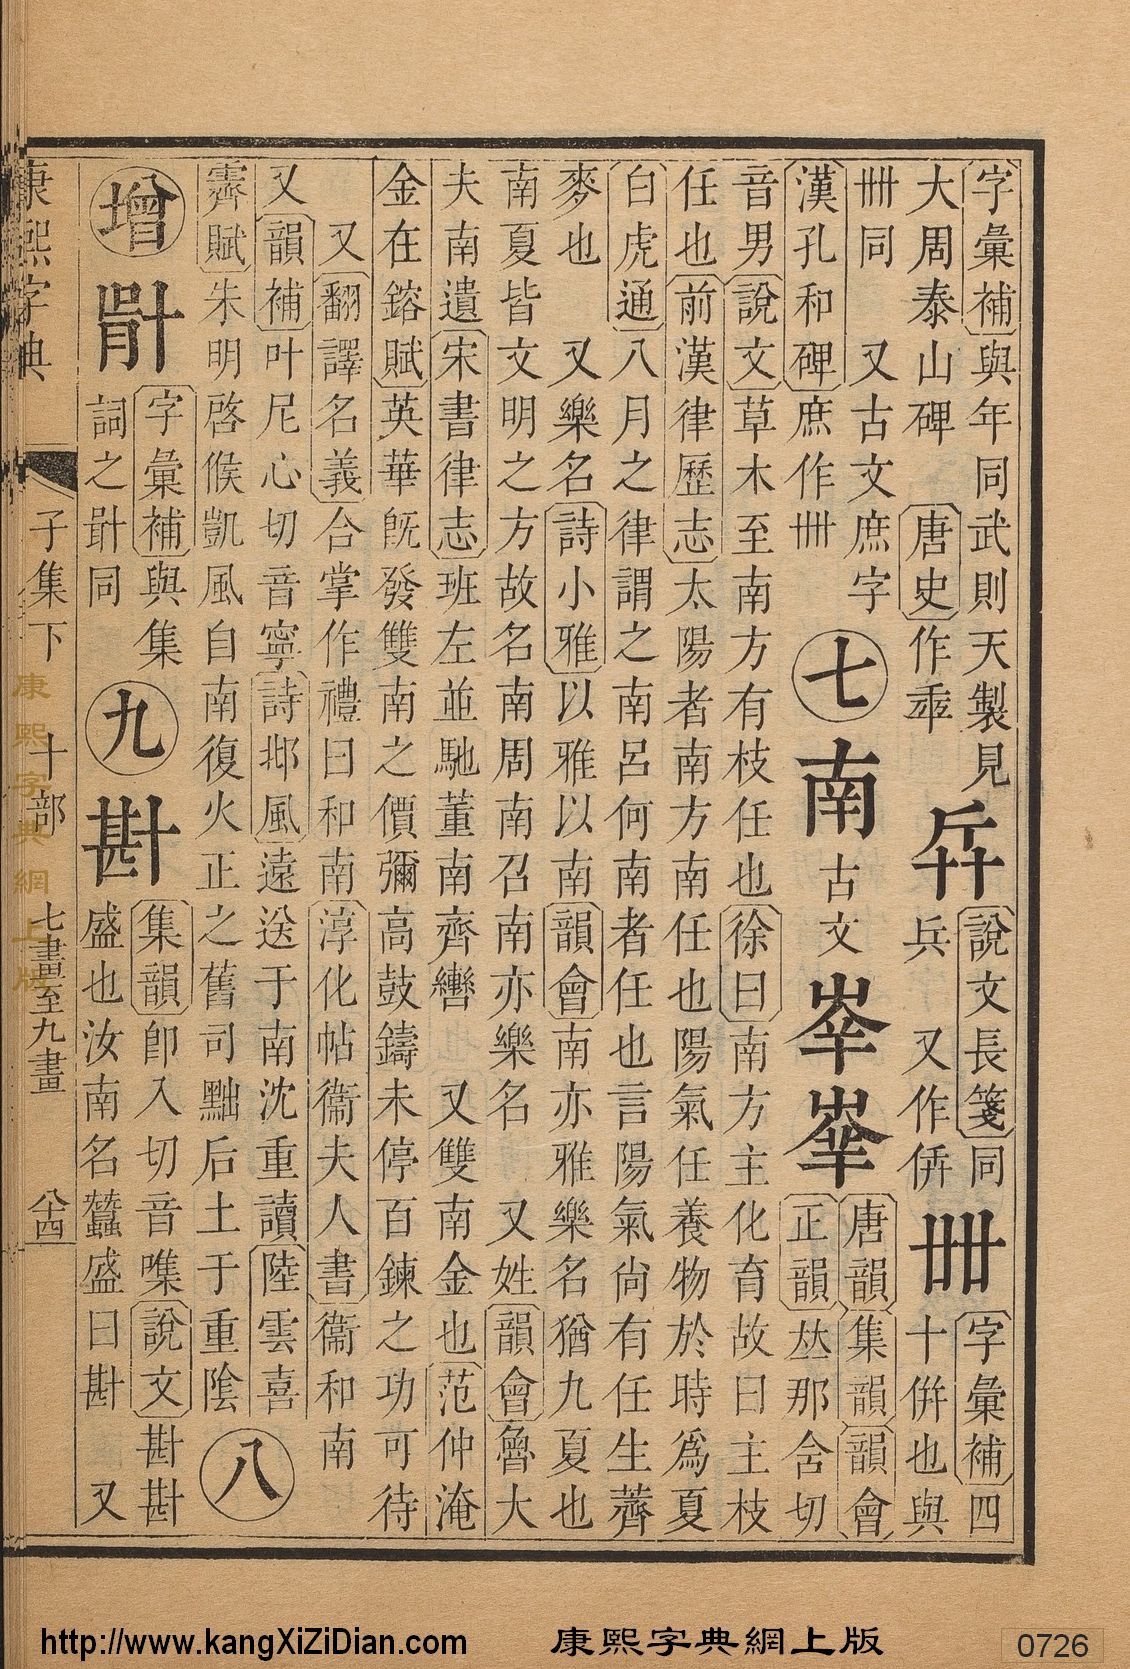 字彙補與年同武則天製見
大周泰山碑 唐史作𠦚
𠦫
說文長箋同
兵 又作併
卌
字彙補四
十併也與
卌同 又古文庶字
漢孔和碑庶作卌
七
南
古文
𡴖𡴟
唐韻集韻韻會
正韻𠀤那含切
音男說文草木至南方有枝任也徐曰南方主化育故曰主枝
任也前漢律歷志太陽者南方南任也陽氣任養物於時爲夏
白虎通八月之律謂之南呂何南者任也言陽氣尙有任生薺
麥也 又樂名詩小雅以雅以南韻會南亦雅樂名猶九夏也
南夏皆文明之方故名南周南召南亦樂名 又姓韻會魯大
夫南遺宋書律志班左並馳董南齊轡 又雙南金也范仲淹
金在鎔賦英華旣發雙南之價彌高鼓鑄未停百鍊之功可待
又翻譯名義合掌作禮曰和南淳化帖衞夫人書衞和南
又韻補叶尼心切音寧詩邶風遠送于南沈重讀陸雲喜
霽賦朱明啓候凱風自南復火正之舊司黜后土于重陰
八
增
𠦬
字彙補與集
詞之𠦬同
九
斟
集韻卽入切音喍說文斟斟
盛也汝南名蠶盛曰斟 又
康熙字典
子集下 十部 七畫至九畫
八十四
康熙字典網上版
http://www.kangXiZiDian.com
康熙字典網上版
0726